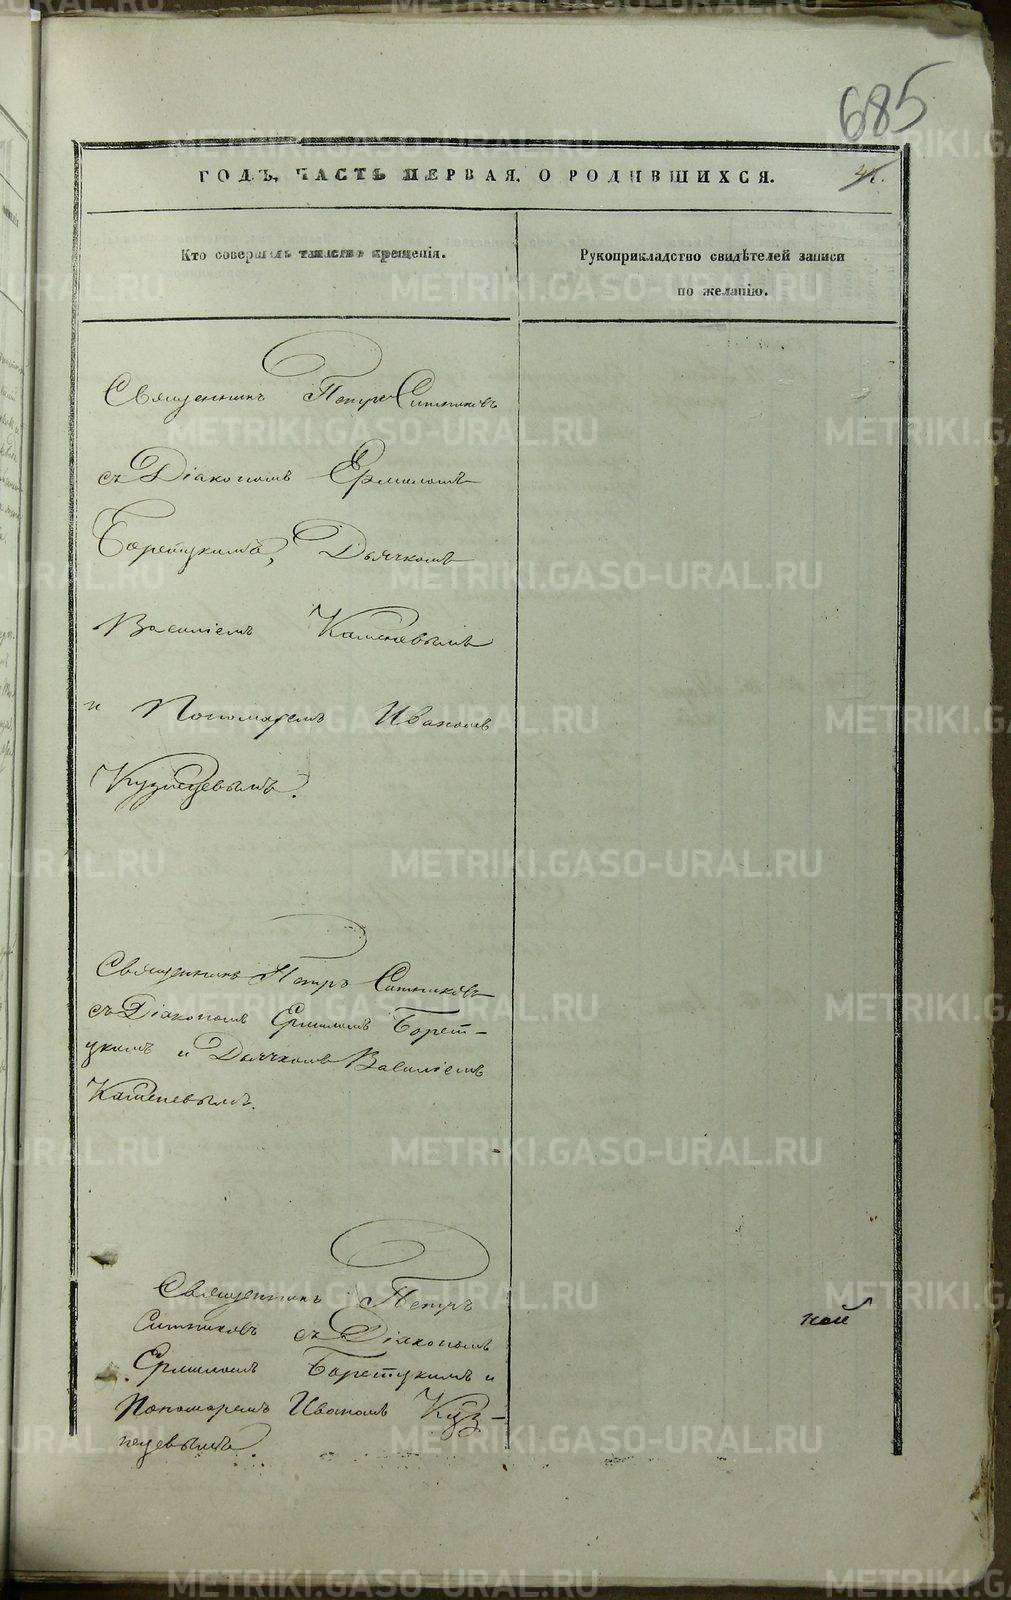 685
ГОДЪ, ЧАСТЬ ПЕРВАЯ, О РОДИВШИХСЯ.
Кто совершалъ таинство крещенія.
Рукоприкладство свидѣтелей записи
по желанію.
Священникъ Петръ Ситниковъ
съ Діакономъ Ермиломъ
Борецкимъ, Дьячкомъ
Василіемъ Каменевымъ
и Пономаремъ Иваномъ
Кузнецевымъ.
Священникъ Петръ Ситниковъ
съ Діакономъ Ермиломъ Борет-
цкимъ и Дьячкомъ Василіемъ
Каменевымъ.
Священникъ Петръ
Ситниковъ съ Діакономъ
Ермиломъ Боретцкимъ и
Пономаремъ Иваномъ Куз-
нецевымъ.
METRIKI.GASO-URAL.RU